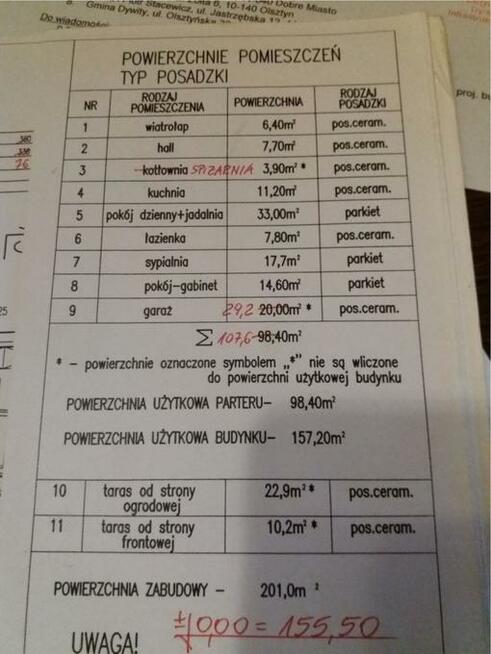 6, 10-140 Olsztyn
Gmina Dywity, ul. Olsztyńska
ul. Jastrzębska
Dobre Miasto
Do wiadomości
proj. bu
POWIERZCHNIE POMIESZCZEŃ
TYP POSADZKI
NR RODZAJ POMIESZCZENIA POWIERZCHNIA RODZAJ POSADZKI
1 wiatrołap 6,40m² pos.ceram.
2 hall 7,70m² pos.ceram.
3 kotłownia SPIŻARNIA 3,90m² * pos.ceram.
4 kuchnia 11,20m² pos.ceram.
5 pokój dzienny+jadalnia 33,00m² parkiet
6 łazienka 7,80m² pos.ceram.
7 sypialnia 17,7m² parkiet
8 pokój-gabinet 14,60m² parkiet
9 garaż 29,2 20,00m² * pos.ceram.
Σ 107,6 98,40m²
* - powierzchnie oznaczone symbolem „*" nie są wliczone
do powierzchni użytkowej budynku
POWIERZCHNIA UŻYTKOWA PARTERU- 98,40m²
POWIERZCHNIA UŻYTKOWA BUDYNKU- 157,20m²
10 taras od strony ogrodowej 22,9m² * pos.ceram.
11 taras od strony frontowej 10,2m² * pos.ceram.
POWIERZCHNIA ZABUDOWY - 201,0m ²
±0,00 = 155,50
UWAGA!